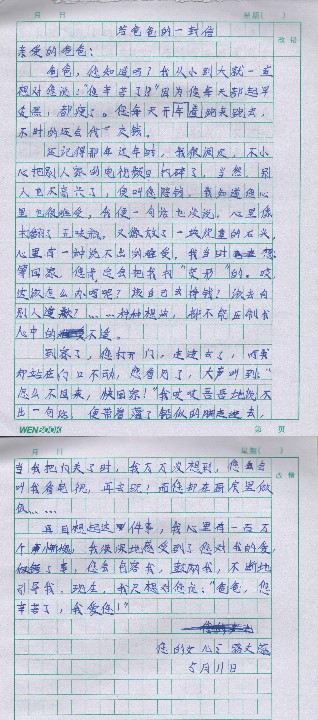 月 日 星期( )
给爸爸的一封信
改错
亲爱的爸爸:
爸爸,您知道吗?我从小到大就一直
想对您说:"您辛苦了!"因为您每天都起早
贪黑,都瘦了。您每天开车跑来跑去,
不时的还去代 交钱。
还记得那年过年时,我很调皮,不小
心把别人家的电视 打碎了。当然,别
人也不高兴了,便叫您赔钱,我知道您心
里也很难受,我便一句话也没说,心里像
打翻了五味瓶,又像放了一块沉重的石头,
心里有一种说不出的难受,我当时 想
等回家,您肯定会把我打"变形"的。唉
这该怎么办呢呢?该自己去挣钱?该去向
别人 ?……种种想法,都不能压制我
心中的 不住。
到家了,您打开门,走进去了,而我
却站在门口不动,您看见了,大声叫到:"
怎么不回来,快回家!"我吱吱吾吾地说不
出一句话,便带着灌了铅似的脚走进去,
WENBOOK 第 页
月 日 星期( )
改错
当我把门关了时,我万万没想到,您 去
叫我看电视,再去玩!而您却在厨房里做
饭……
再回想起这件事,我心里有一百万
个 ,我深深地感受到了您对我的爱,
做错了事,您会包容我,鼓励我,不断地
引导我。现在,我只想对您说:"爸爸,您
辛苦了,我爱您!"
您的女儿:
5月11日